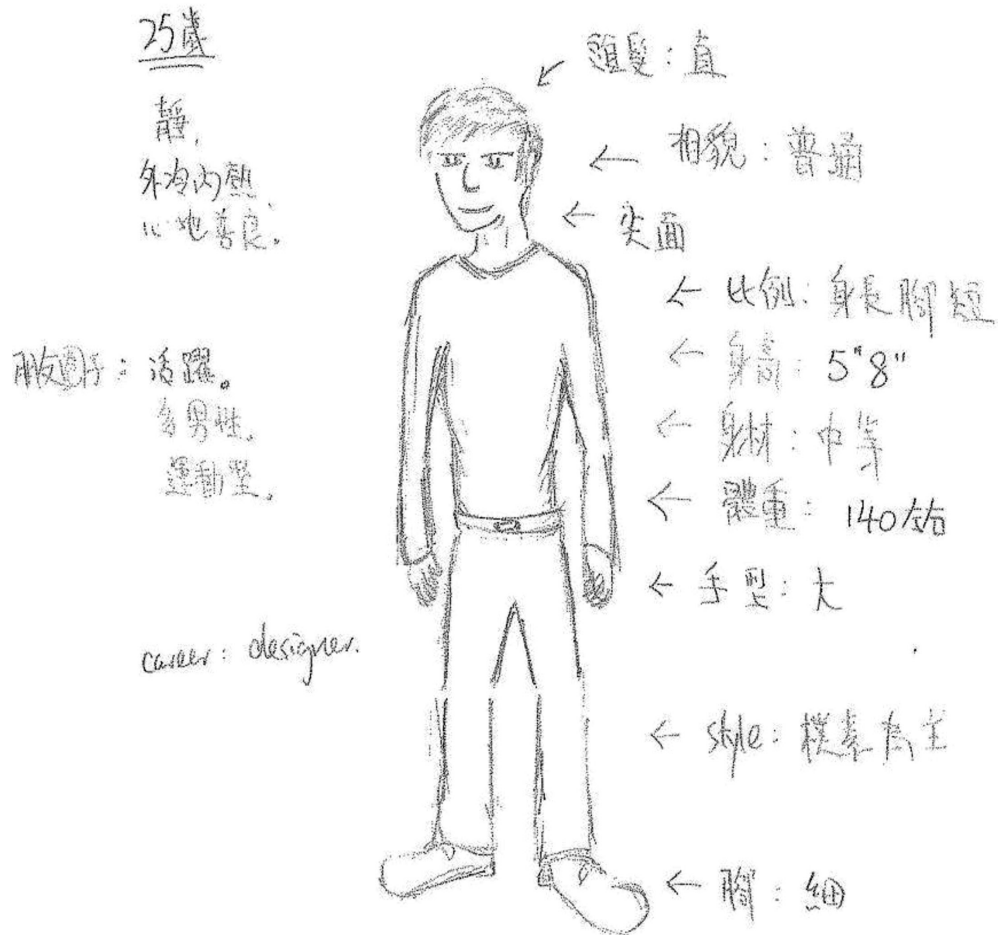 25歲
靜,
外冷內熱,
心地善良。
朋友圈子：活躍。
多男性。
運動型。
career: designer.
頭髮：直
相貌：普通
尖面
比例：身長腳短
身高：5"8"
身材：中等
體重：140左右
手型：大
style: 樸素為主
腳：細